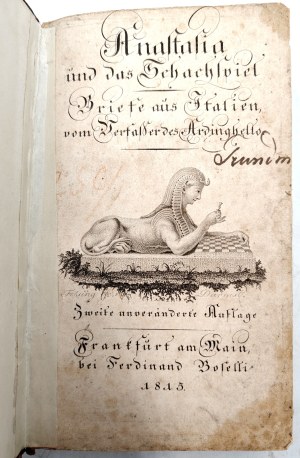 Anastasia
und das Schachspiel
Briefe aus Italien,
vom Verfasser des Ardinghello
Zweite unveränderte Auflage
Frankfurt am Main,
bei Ferdinand Boselli
1815